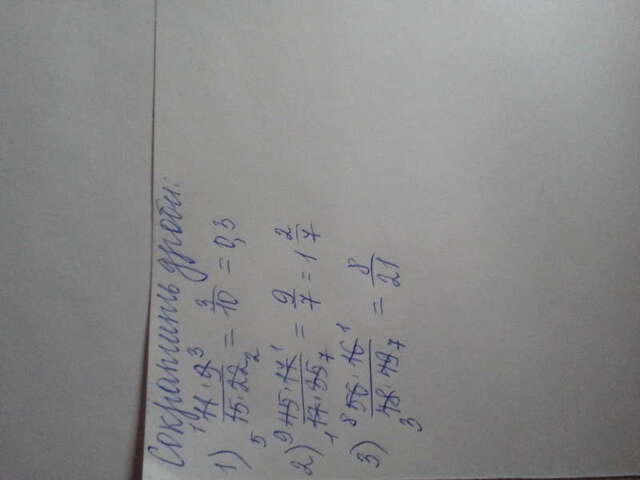 Сократить дроби:
1) 11·9/15·22 = 3/10 = 0,3
2) 45·17/17·35 = 9/7 = 1 2/7
3) 56·16/48·49 = 8/21